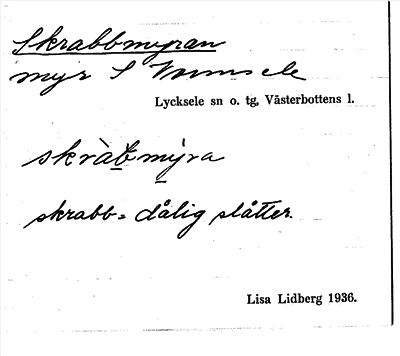 Skrabbmyran
myr S Vormsele
Lycksele sn o. tg, Västerbottens l.
skràb̲mỳra
skrabb = dålig slåtter.
Lisa Lidberg 1936.